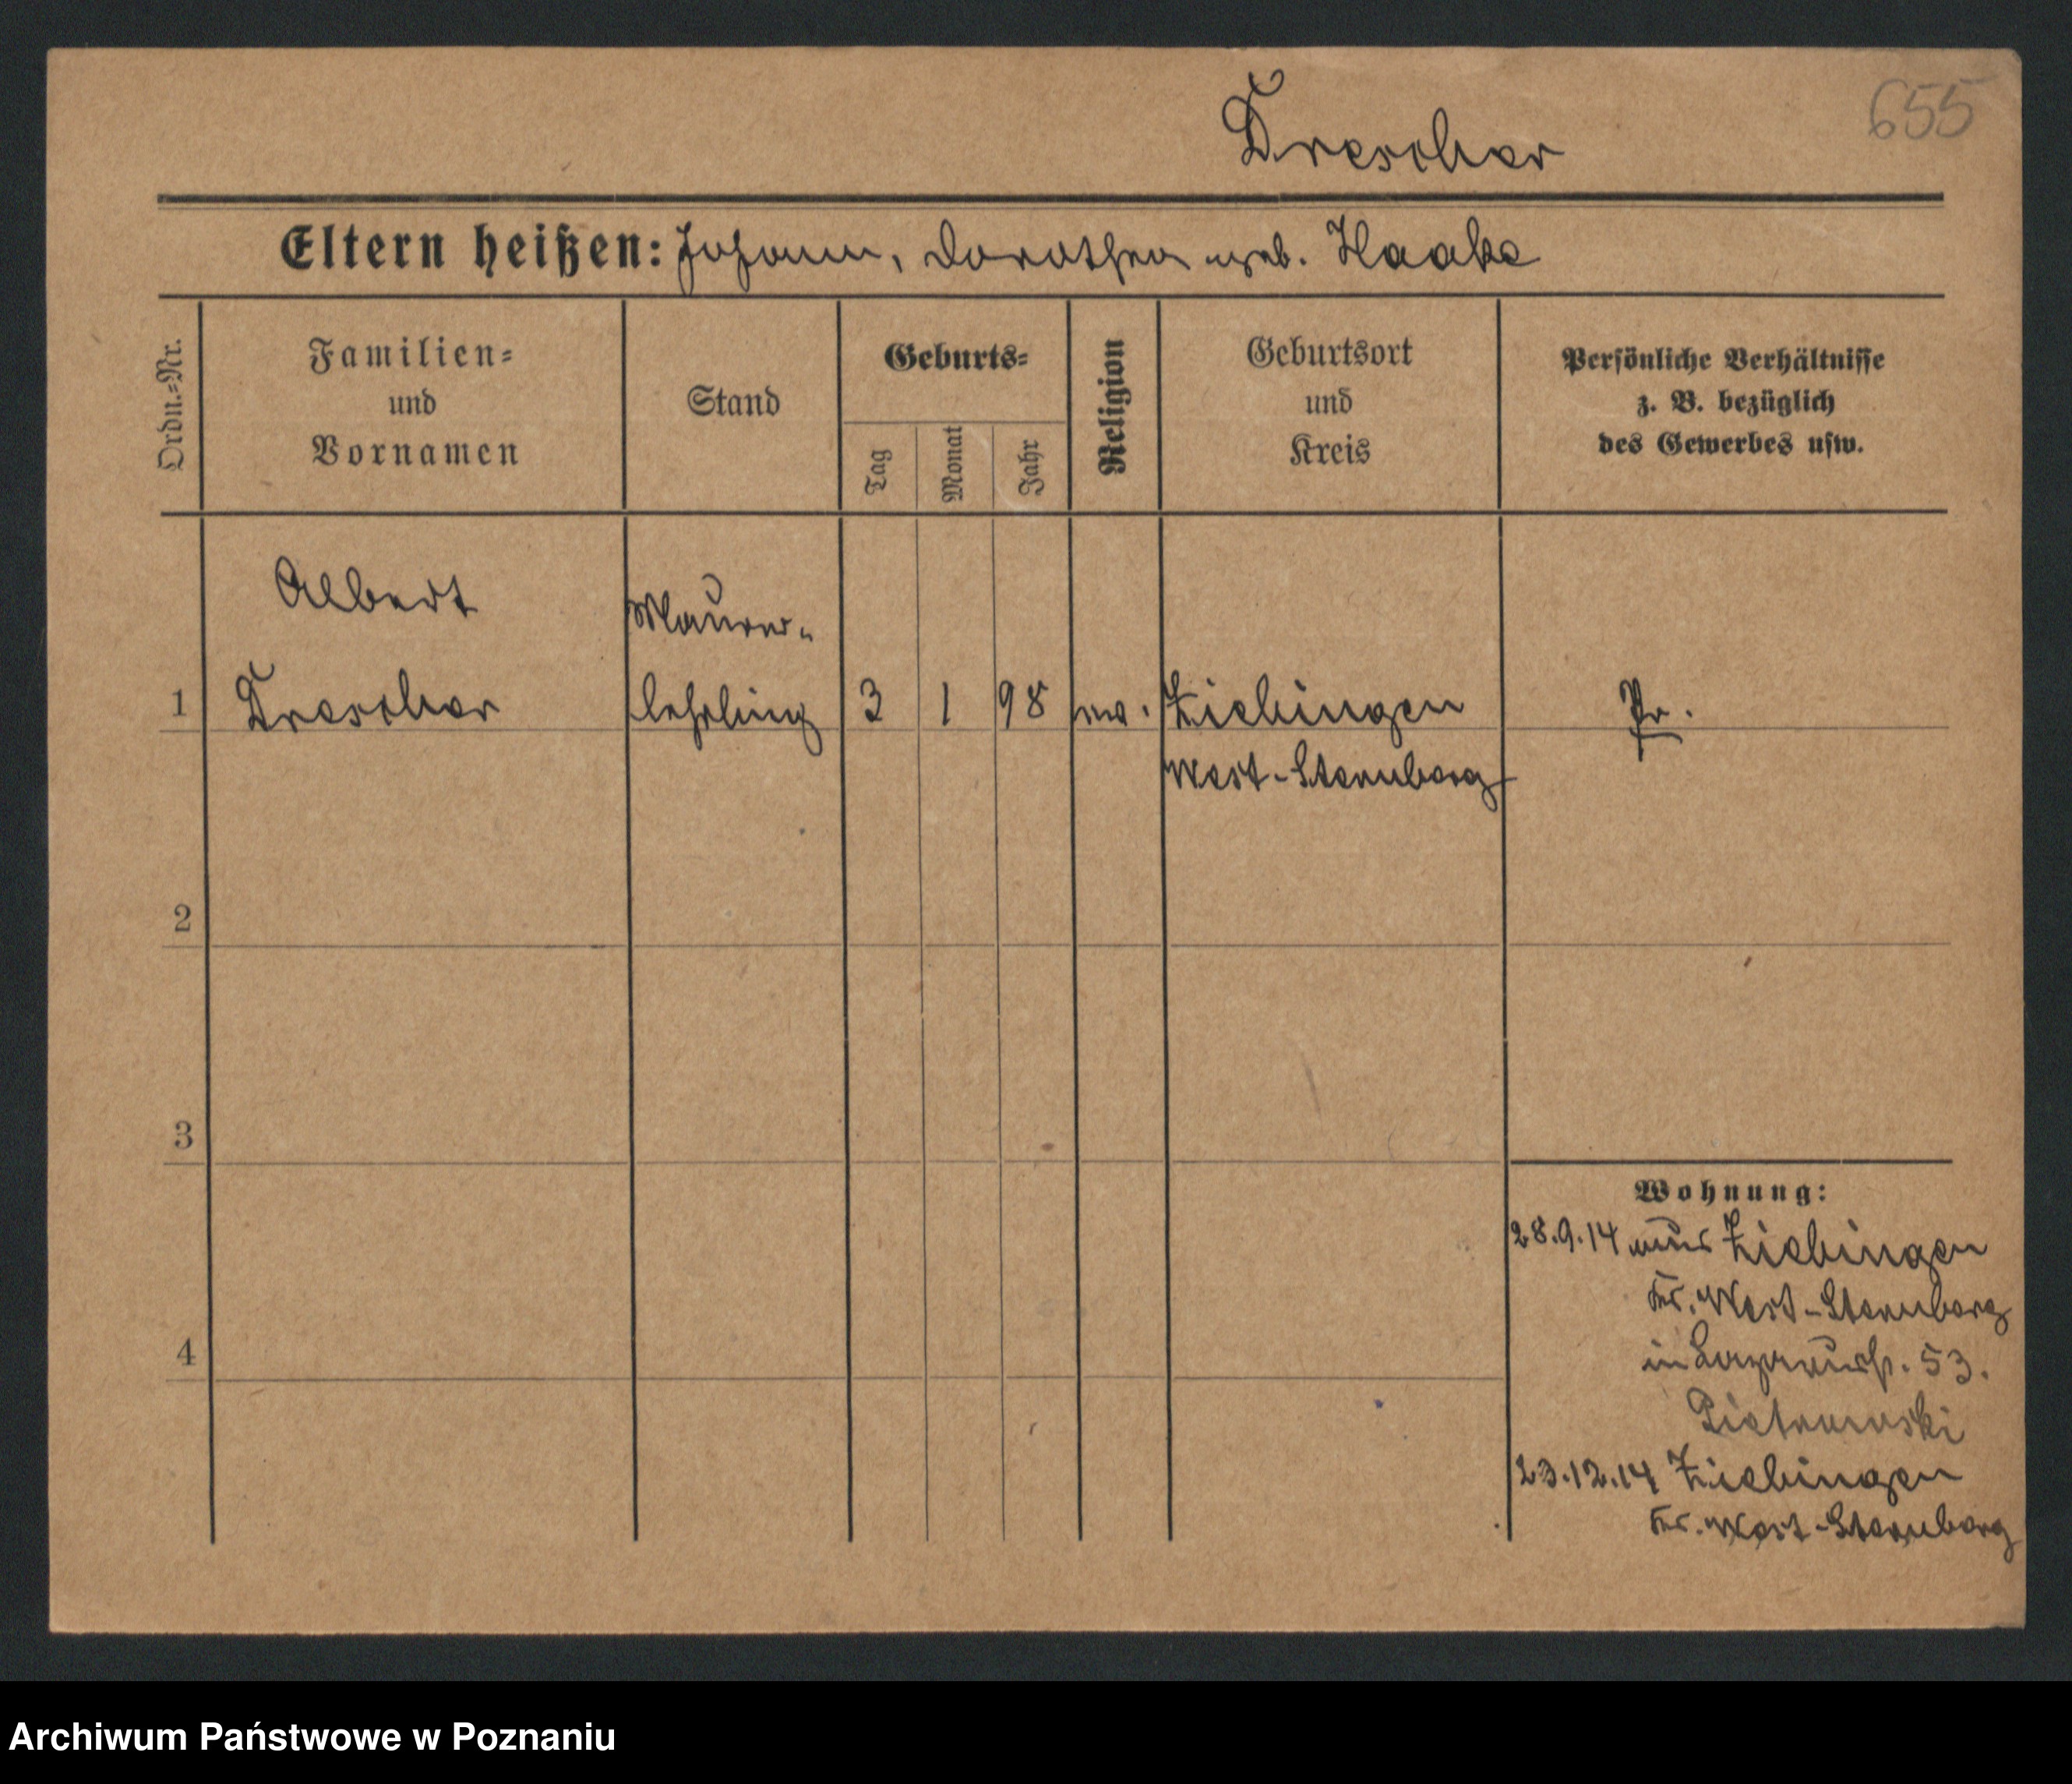 655
Drescher
Eltern heißen: Johann, Dorothea geb. Haake
Ordn.-Nr.
Familien-
und
Vornamen
Stand
Geburts-
Tag
Monat
Jahr
Religion
Geburtsort
und
Kreis
Persönliche Verhältnisse
z. B. bezüglich
des Gewerbes usw.
Albert
Maurer-
1 Drescher lehrling 3 1 98 ev. Ziebingen Pr.
West-Sternberg
2
3
Wohnung:
28.9.14 aus Ziebingen
Kr. West-Sternberg
4
in 53.
23.12.14 Ziebingen
Kr. West-Sternberg
Archiwum Państwowe w Poznaniu